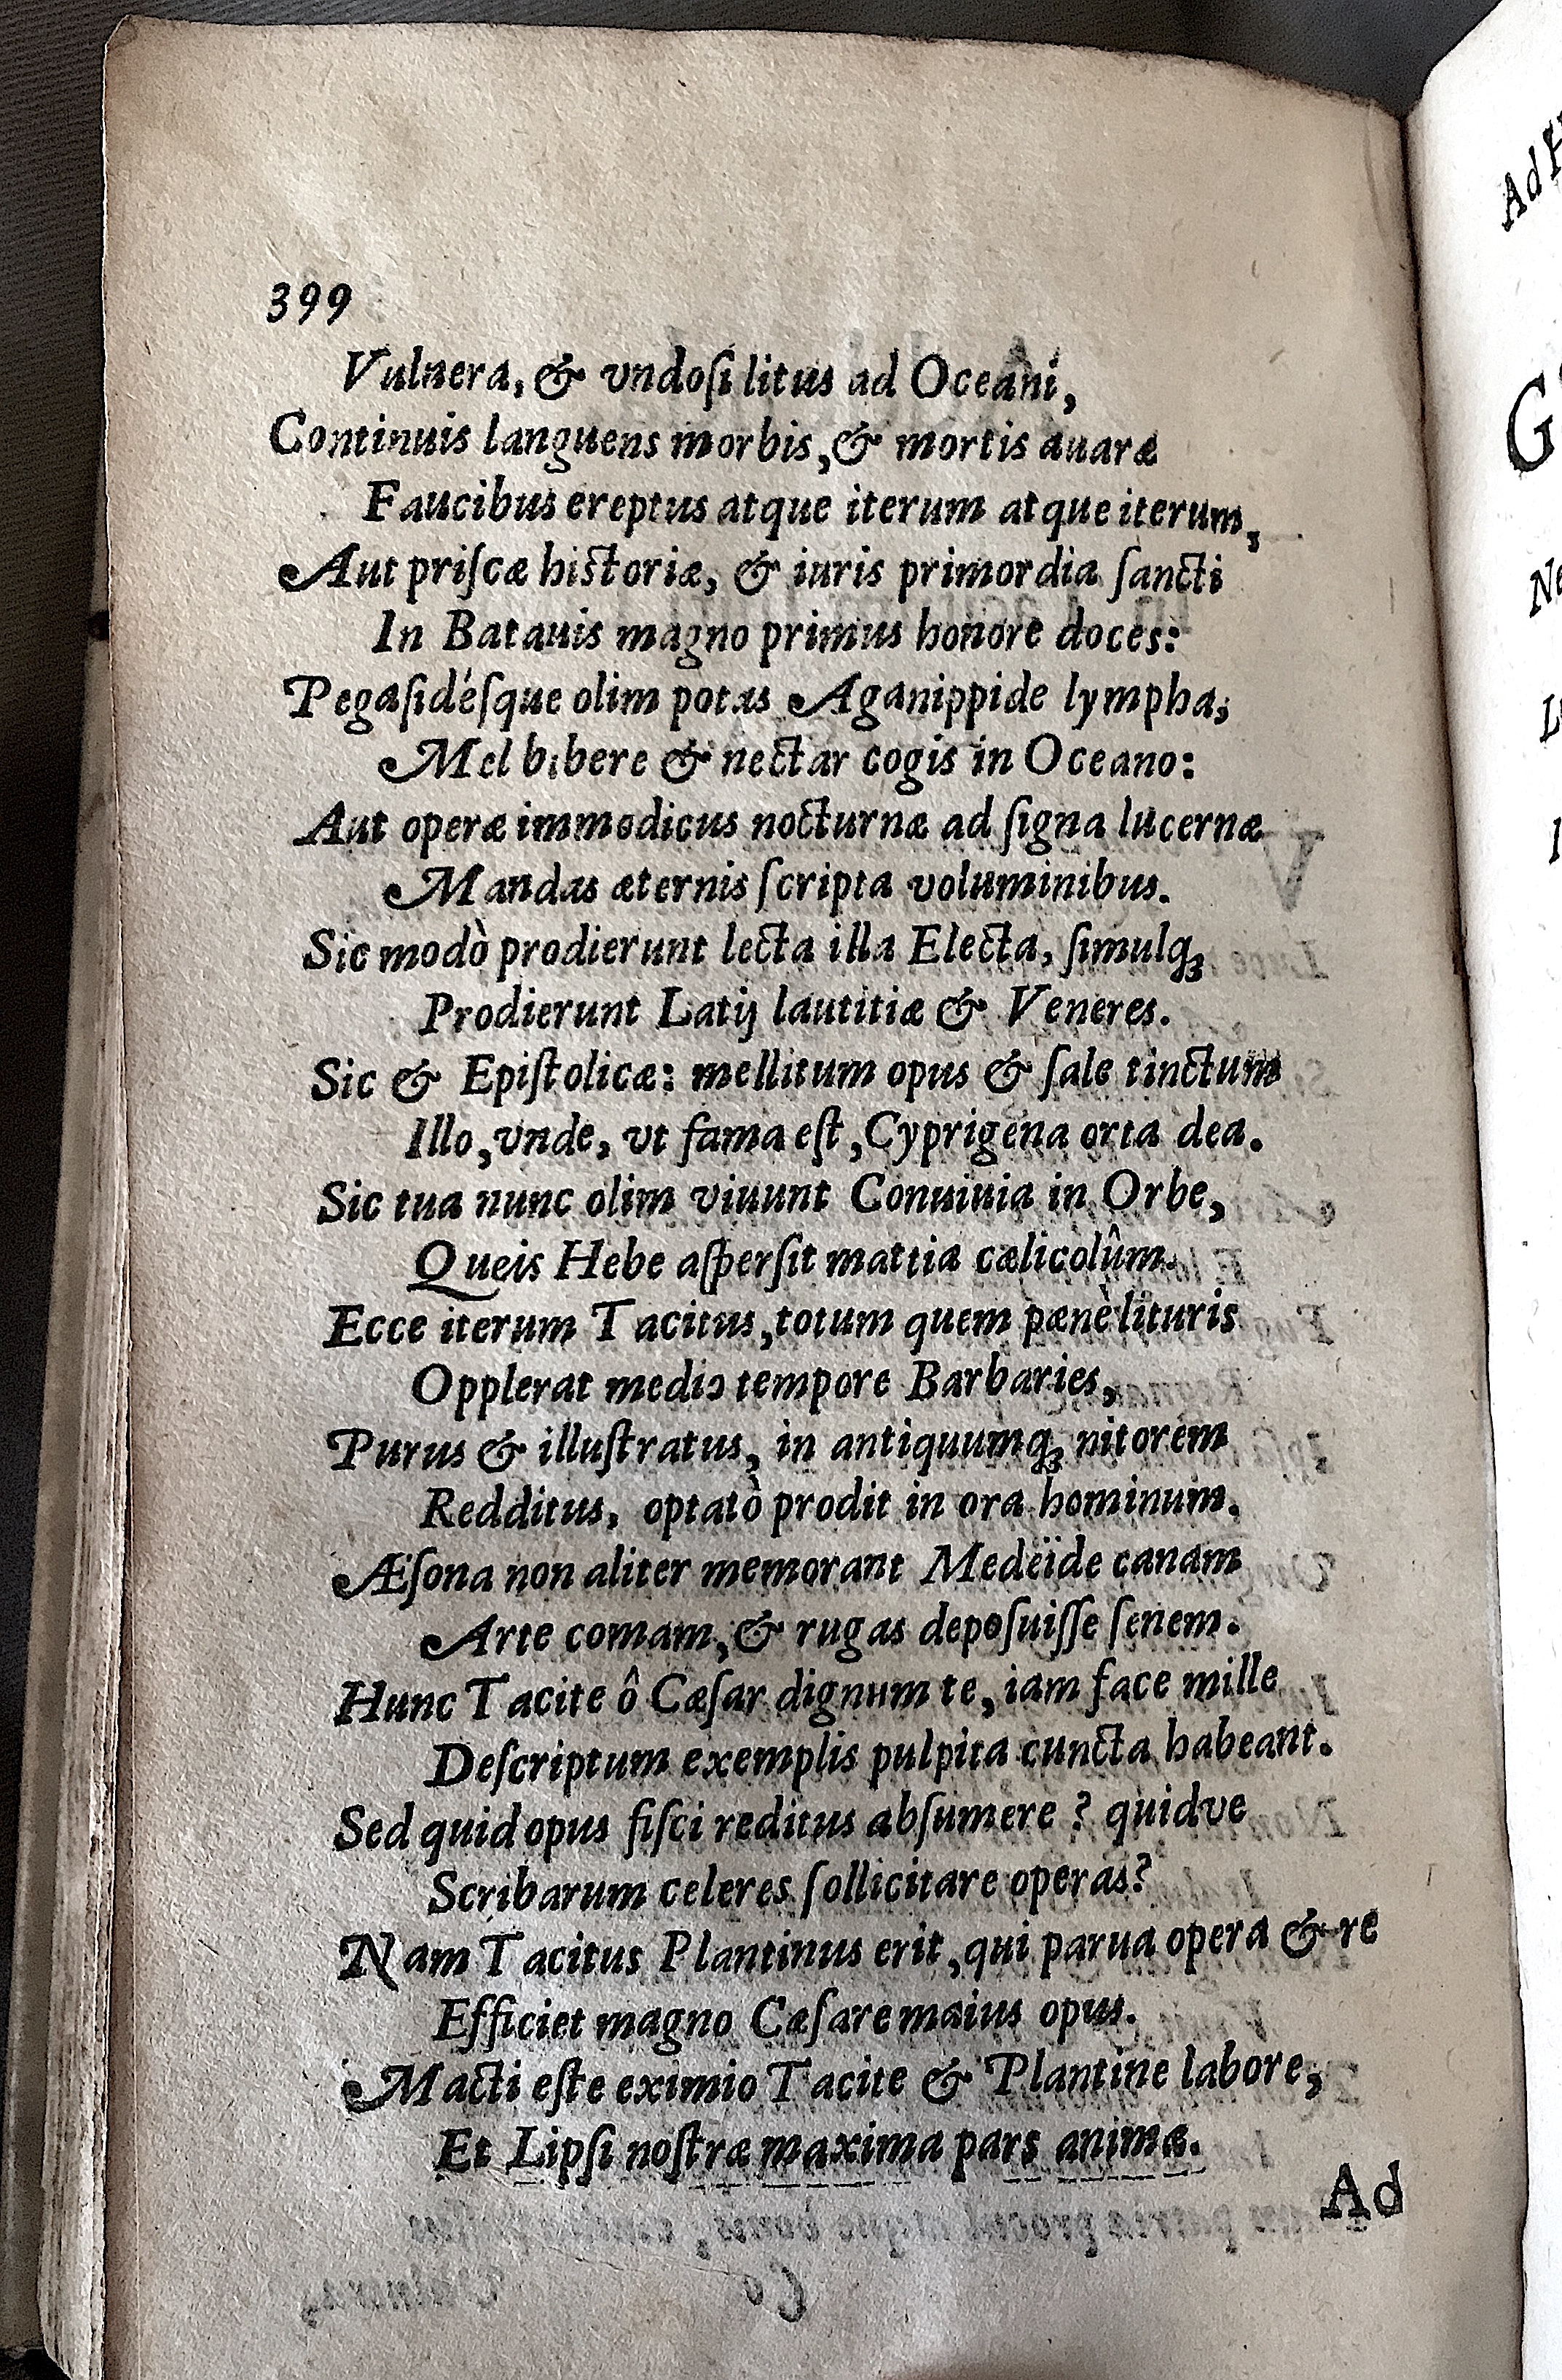 399
Vulnera, & vndoſi litus ad Oceani,
Continuis languens morbis, & mortis auaræ
Faucibus ereptus atque iterum atque iterum,
Aut priſcæ hiſtoriæ, & iuris primordia ſancti
In Batauis magno primus honore doces:
Pegaſidéſque olim potas Aganippide lympha,
Mel bibere & nectar cogis in Oceano:
Aut operæ immodicus nocturnæ ad ſigna lucernæ
Mandas æternis ſcripta voluminibus.
Sic modò prodierunt lecta illa Electa, ſimulq́ꝫ
Prodierunt Latij lautitiæ & Veneres.
Sic & Epiſtolicæ: mellitum opus & ſale tinctum
Illo, vnde, vt fama eſt, Cyprigena orta dea.
Sic tua nunc olim viuunt Conuiuia in Orbe,
Queis Hebe aſperſit mattia cælicolûm.
Ecce iterum Tacitus, totum quem pænè lituris
Opplerat medio tempore Barbaries,
Purus & illuſtratus, in antiquumq́ꝫ nitorem
Redditus, optatò prodit in ora hominum.
Æſona non aliter memorant Medeïde canam
Arte comam, & rugas depoſuiſſe ſenem.
Hunc Tacite ô Cæſar dignum te, iam face mille
Deſcriptum exemplis pulpita cuncta habeant.
Sed quid opus fiſci reditus abſumere? quidve
Scribarum celeres ſollicitare operas?
Nam Tacitus Plantinus erit, qui parua opera & re
Efficiet magno Cæſare maius opus.
Macti eſte eximio Tacite & Plantine labore,
Et Lipſi noſtræ maxima pars animæ.
Ad
Ad
G
Ne